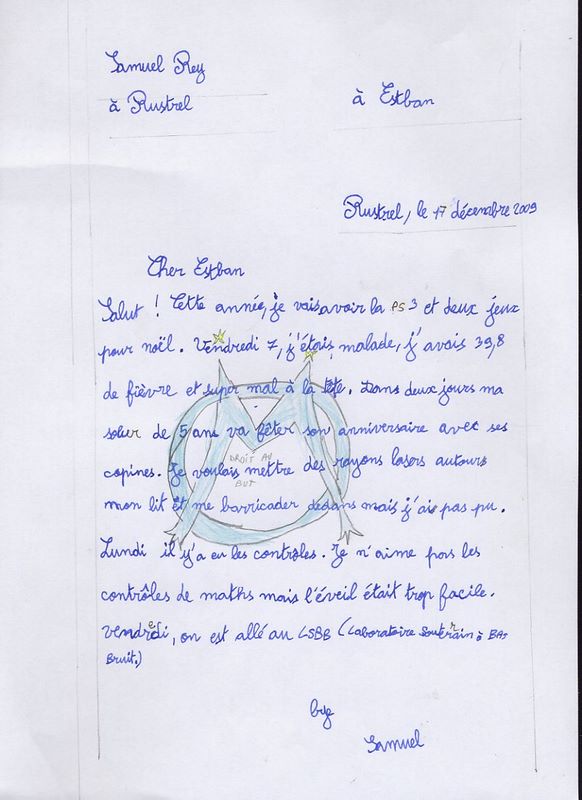 Samuel Rey
à Rustrel
à Estban
Rustrel, le 17 décembre 2009
Cher Estban
Salut ! Cette année, je vais avoir la PS3 et deux jeux
pour noël. Vendredi 7, j'étais malade, j'avais 39,8
de fièvre et super mal à la tête. Dans deux jours ma
soeur de 5 ans va fêter son anniversaire avec ses
copines. Je voulais mettre des rayons lasers autours
mon lit et me barricader dedans mais j'ais pas pu.
DROIT AU
BUT
Lundi il y'a eu les contrôles. Je n'aime pas les
contrôles de maths mais l'éveil était trop facile.
Vendredi, on est allé au LSBB (Laboratoire Souterrain à BAS
Bruit.)
bye
Samuel